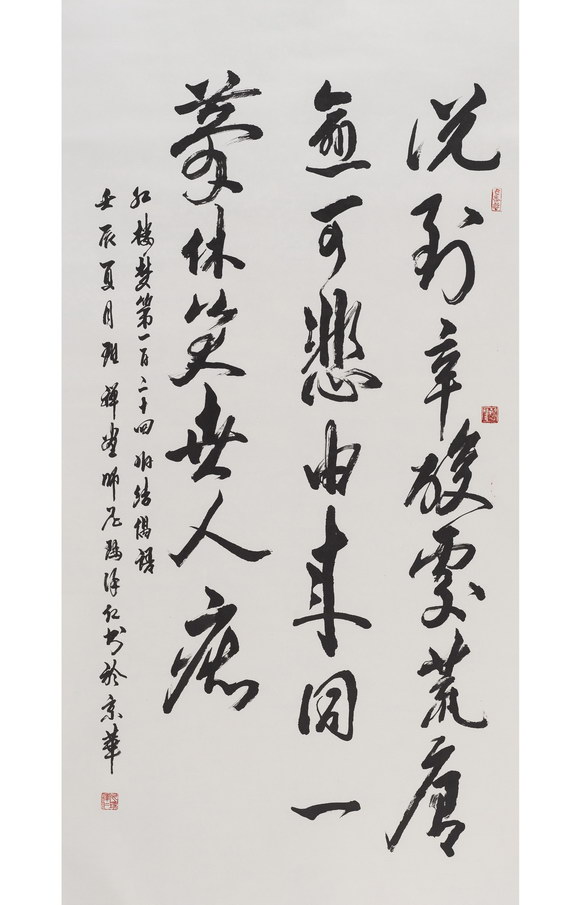 說到辛酸處荒唐
愈可悲由來同一
夢休笑世人痴
紅樓夢第一百二十回結偈語
壬辰夏月班禪畫師尼瑪澤仁書於京華